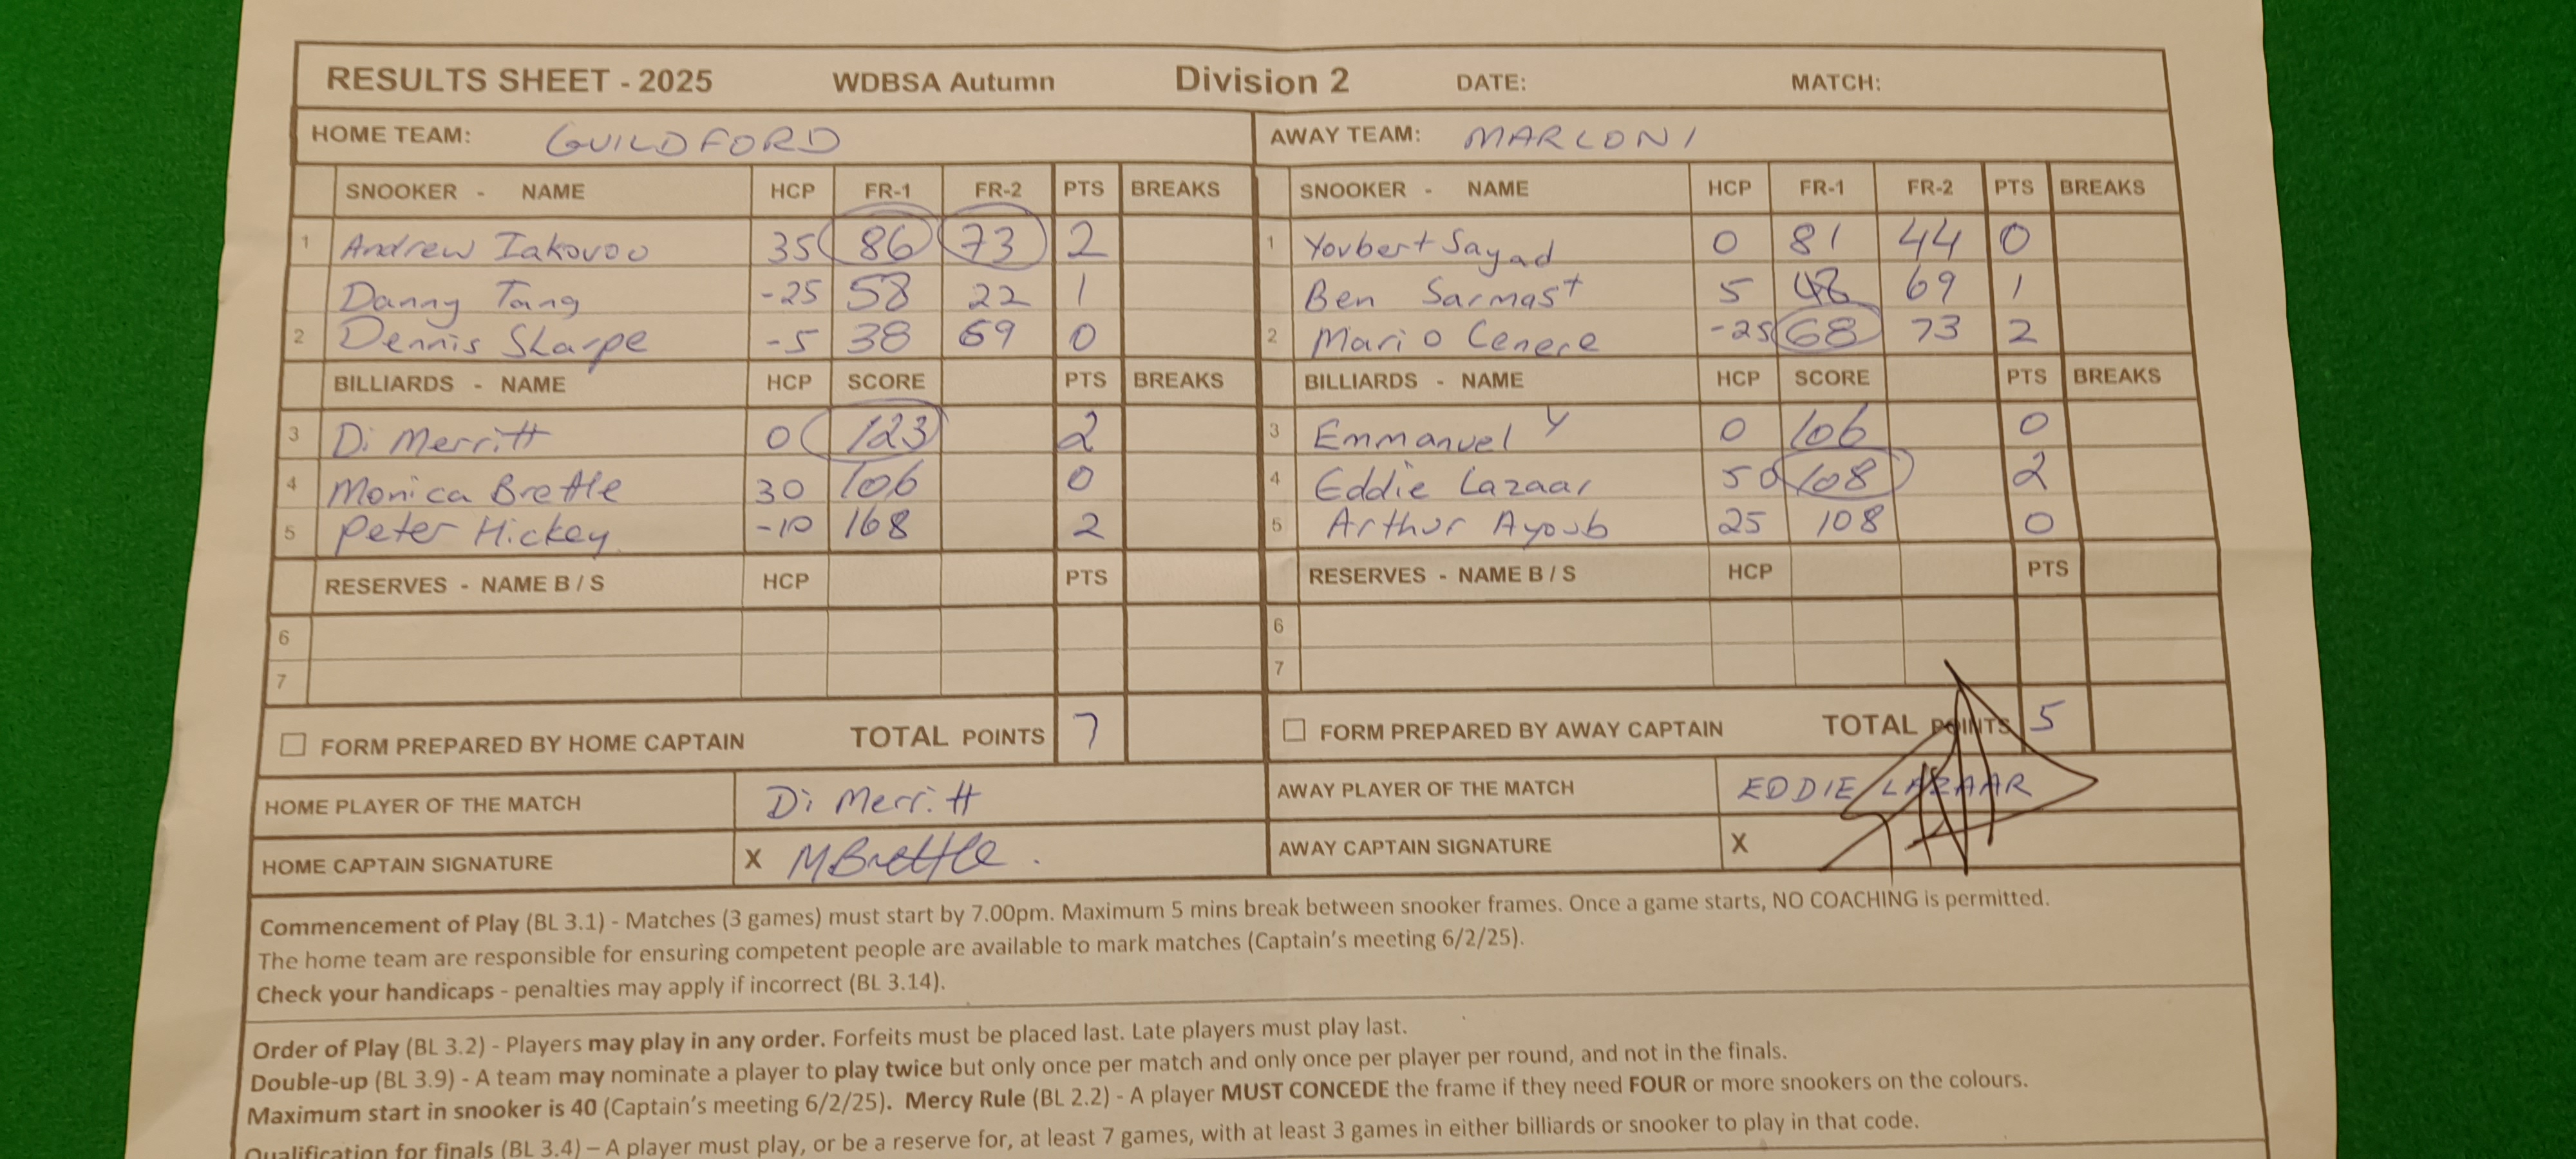 RESULTS SHEET - 2025 WDBSA Autumn Division 2 DATE: MATCH:
HOME TEAM: GUILDFORD AWAY TEAM: MARCONI
SNOOKER - NAME HCP FR-1 FR-2 PTS BREAKS SNOOKER - NAME HCP FR-1 FR-2 PTS BREAKS
1 Andrew Iakovou 35 86 73 2 1 Youbert Sayad 0 81 44 0
Danny Tang -25 58 22 1 Ben Sarmast 5 48 69 1
2 Dennis Sharpe -5 38 69 0 2 Mario Cenere -25 68 73 2
BILLIARDS - NAME HCP SCORE PTS BREAKS BILLIARDS - NAME HCP SCORE PTS BREAKS
3 Di Merritt 0 123 2 3 Emmanuel Y 0 106 0
4 Monica Brettle 30 106 0 4 Eddie Lazaar 50 108 2
5 Peter Hickey -10 168 2 5 Arthur Ayoub 25 108 0
RESERVES - NAME B / S HCP PTS RESERVES - NAME B / S HCP PTS
6 6
7 7
FORM PREPARED BY HOME CAPTAIN TOTAL POINTS 7 FORM PREPARED BY AWAY CAPTAIN TOTAL POINTS 5
HOME PLAYER OF THE MATCH Di Merritt AWAY PLAYER OF THE MATCH EDDIE LAZAAR
HOME CAPTAIN SIGNATURE X MBrettle. AWAY CAPTAIN SIGNATURE X
Commencement of Play (BL 3.1) - Matches (3 games) must start by 7.00pm. Maximum 5 mins break between snooker frames. Once a game starts, NO COACHING is permitted.
The home team are responsible for ensuring competent people are available to mark matches (Captain's meeting 6/2/25).
Check your handicaps - penalties may apply if incorrect (BL 3.14).
Order of Play (BL 3.2) - Players may play in any order. Forfeits must be placed last. Late players must play last.
Double-up (BL 3.9) - A team may nominate a player to play twice but only once per match and only once per player per round, and not in the finals.
Maximum start in snooker is 40 (Captain's meeting 6/2/25). Mercy Rule (BL 2.2) - A player MUST CONCEDE the frame if they need FOUR or more snookers on the colours.
Qualification for finals (BL 3.4) – A player must play, or be a reserve for, at least 7 games, with at least 3 games in either billiards or snooker to play in that code.